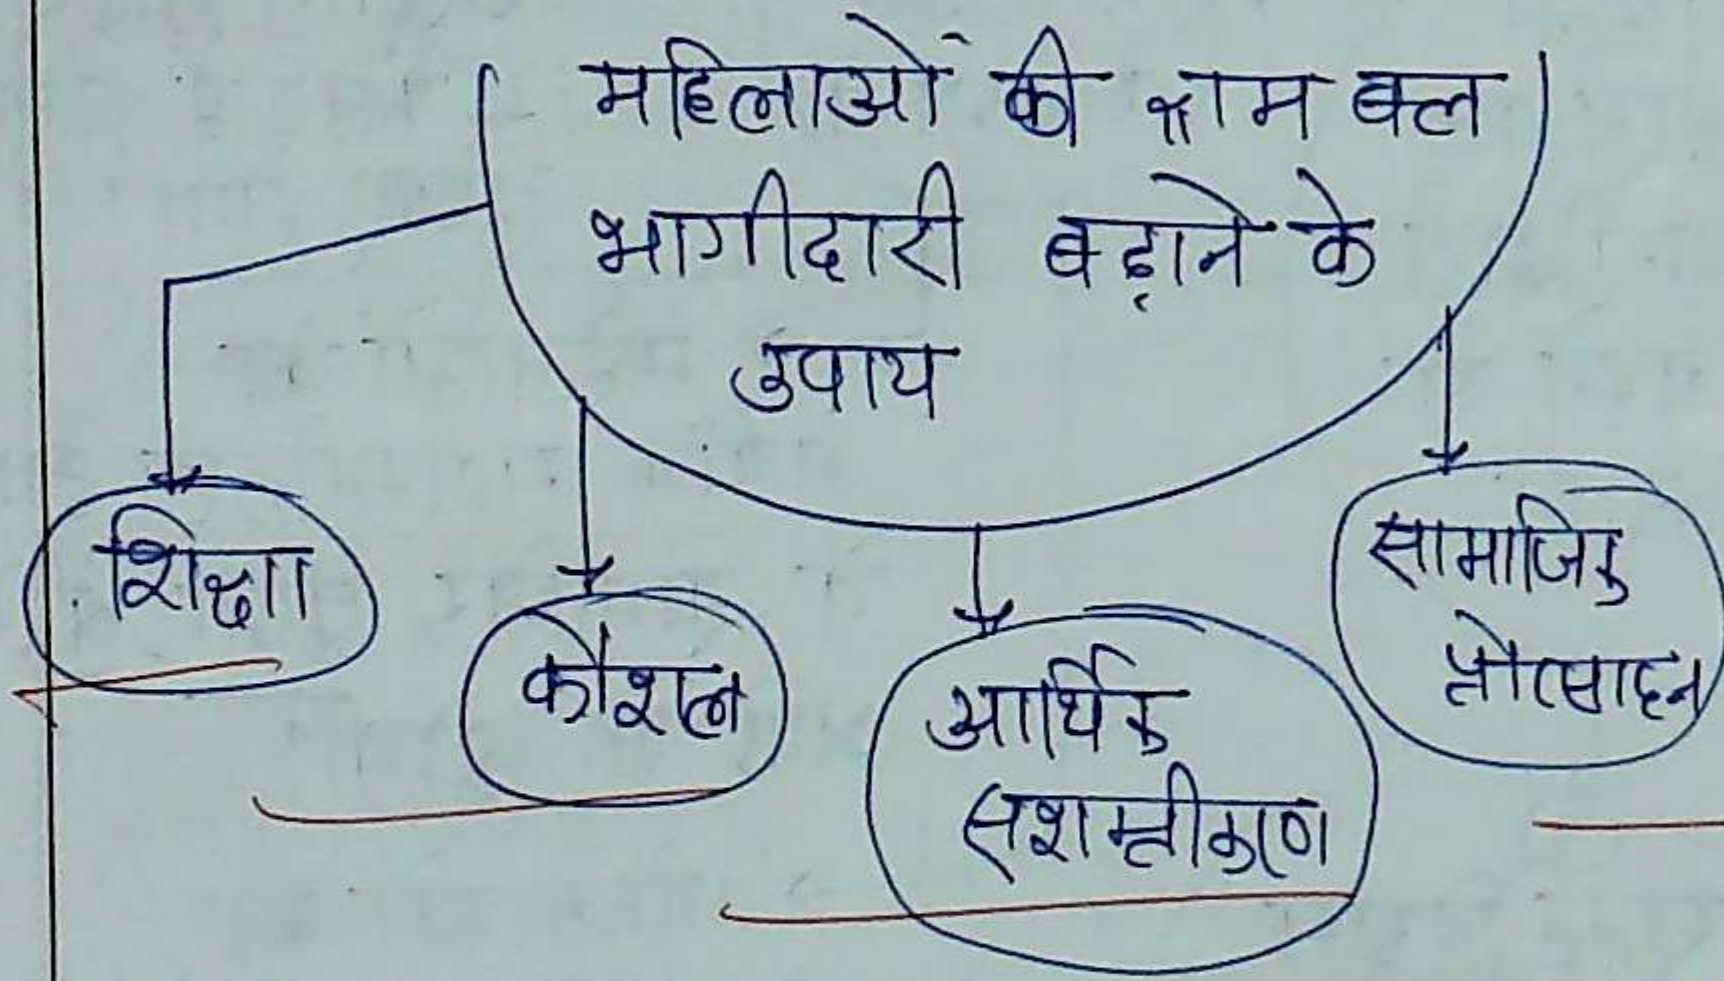 महिलाओं की श्रम बल
भागीदारी बढ़ाने के
उपाय
शिक्षा
कौशल
आर्थिक
सशक्तीकरण
सामाजिक
प्रोत्साहन